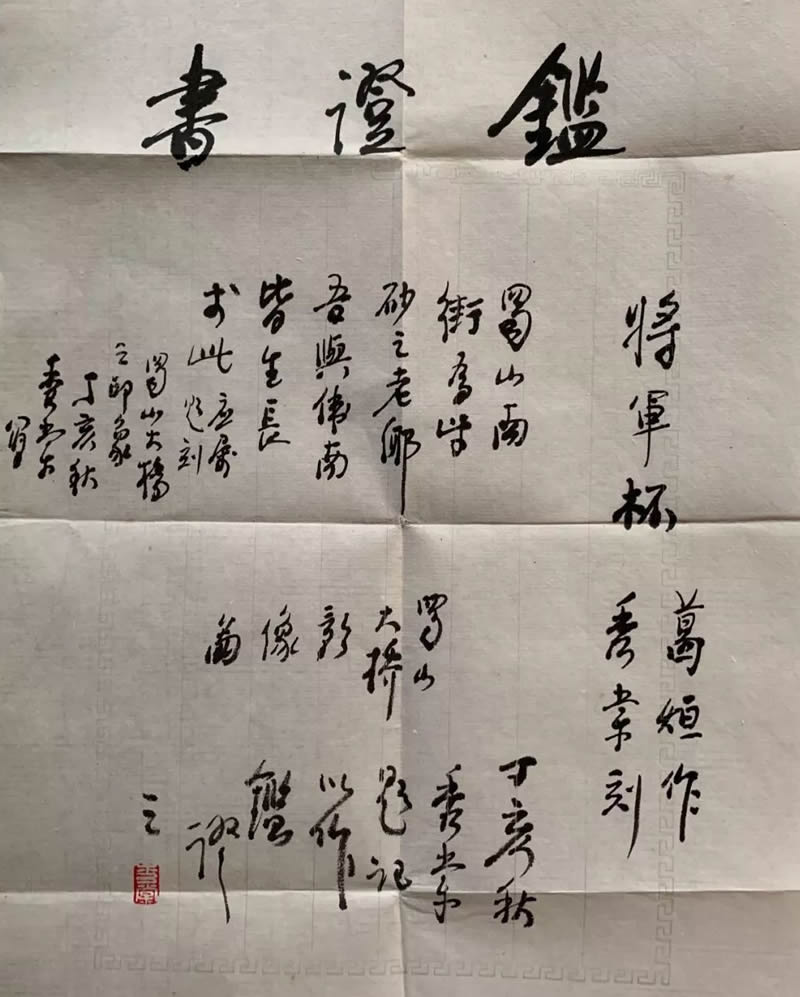 鑑證書
將軍杯
葛烜作
秀棠刻
蜀山南
街為紫
砂之老鄉
吾與偉南
皆生長
於此应屬
刻
蜀山大橋
之印象
丁亥秋
秀棠
蜀山
大橋
像
圖
丁亥秋
秀棠
題记
以作
鑑
證
之